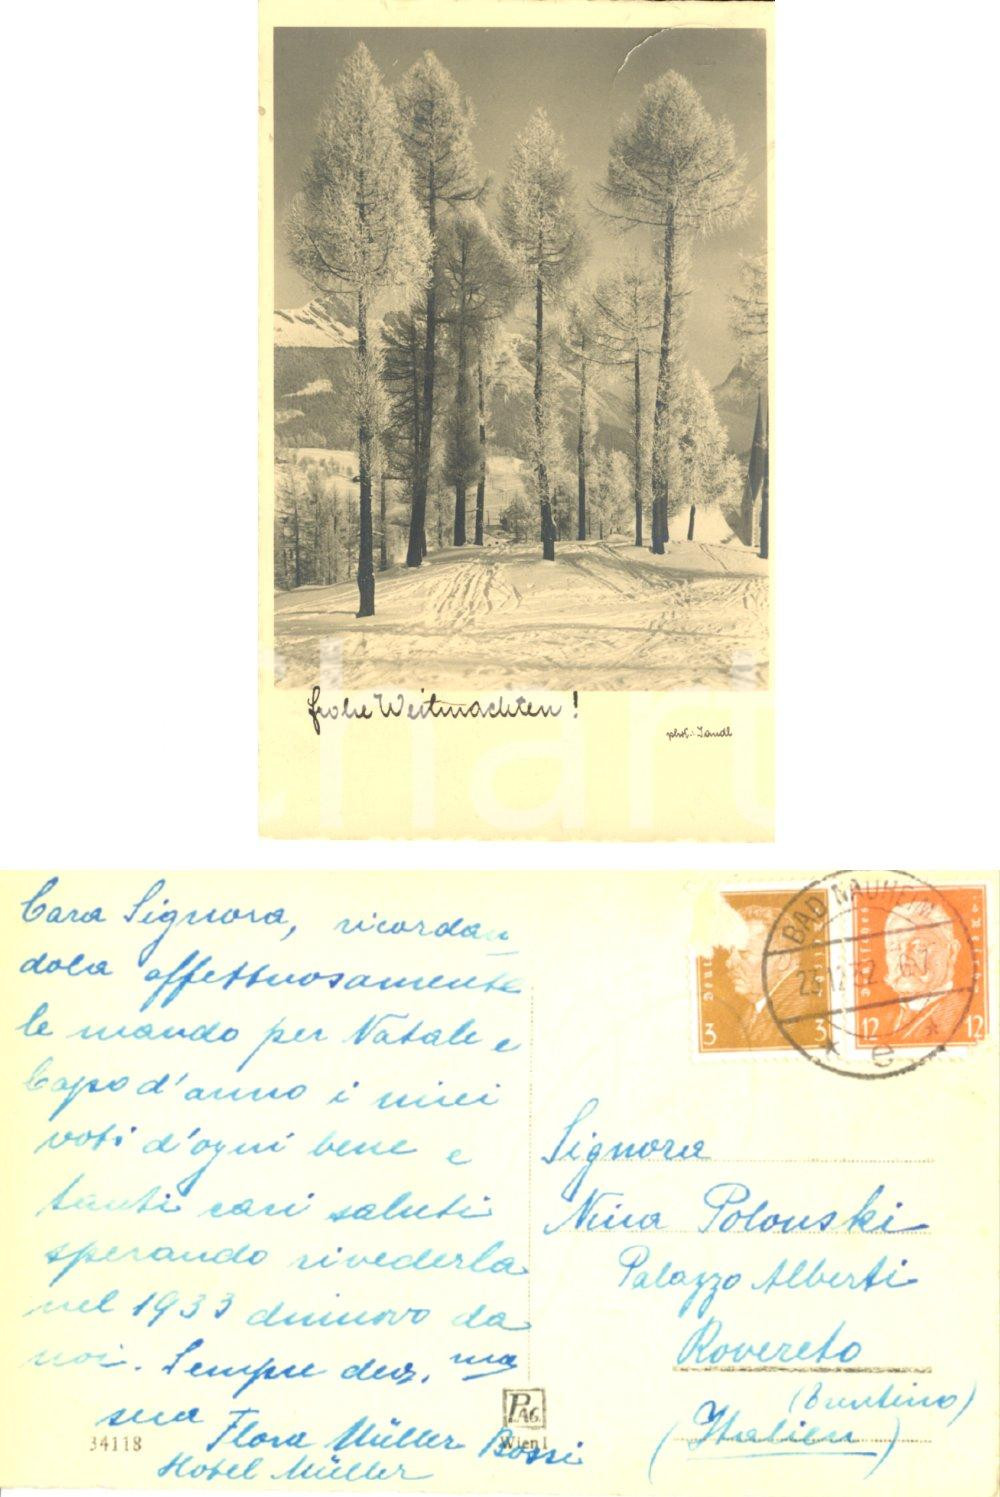 frohe Weihnachten!
phot.: Jandl
Cara Signora, ricordan
dola affettuosamente
le mando per Natale e
Capo d'anno i miei
voti d'ogni bene e
tanti cari saluti
sperando rivederla
nel 1933 dinuovo da
noi. Sempre dev.ma
sua Flora Müller Bossi
Hotel Müller
34118
PAG.
Wien I
BAD NAUHEIM
23.12.32. 6-7
* e *
3 3
12 12
Signora
Nina Polonski
Palazzo Alberti
Rovereto
(Trentino)
(Italien)